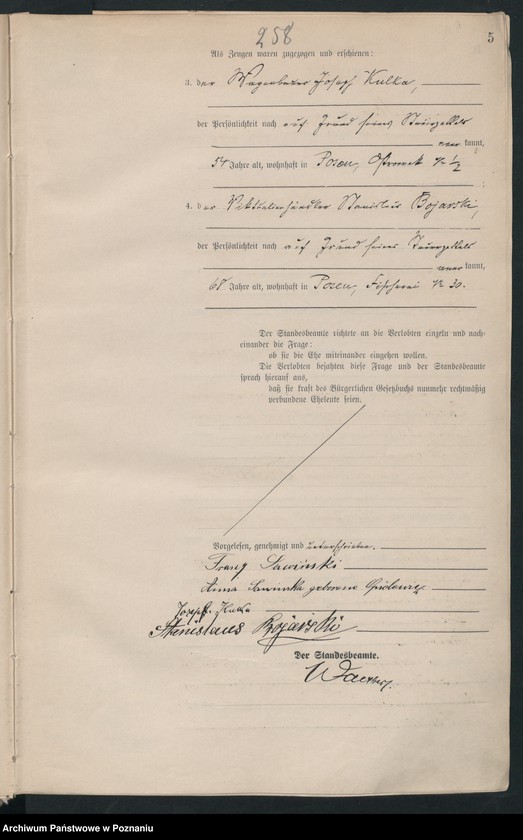 258
5
Als Zeugen waren zugezogen und erschienen:
3. der Wagenbauer Joseph Kulka,
der Persönlichkeit nach auf Grund seines Steuerzettels
aner kannt,
54 Jahre alt, wohnhaft in Posen, Ostrowek № 1/2
4. der Viktualienhändler Stanislaus Bojarski,
der Persönlichkeit nach auf Grund seines Steuerzettels
aner kannt,
68 Jahre alt, wohnhaft in Posen, Fischerei № 30.
Der Standesbeamte richtete an die Verlobten einzeln und nach-
einander die Frage:
ob sie die Ehe miteinander eingehen wollen.
Die Verlobten bejahten diese Frage und der Standesbeamte
sprach hierauf aus,
daß sie kraft des Bürgerlichen Gesetzbuchs nunmehr rechtmäßig
verbundene Eheleute seien.
Vorgelesen, genehmigt und unterschrieben.
Franz Sawinski
Anna Sawinska geborene
Joseph Kulka
Stanislaus Bojarski
Der Standesbeamte.
Archiwum Państwowe w Poznaniu